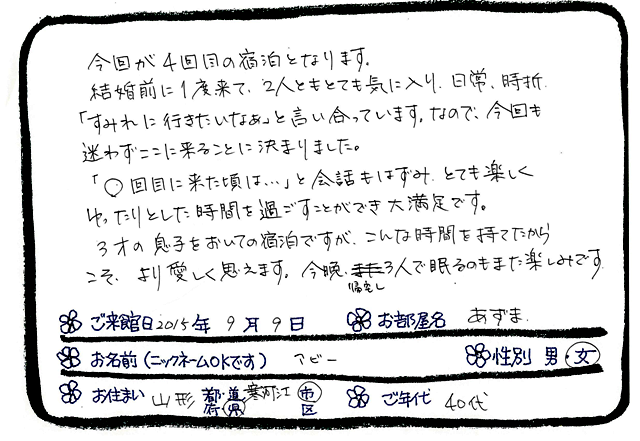 今回が4回目の宿泊となります。
結婚前に1度来て、2人ともとても気に入り、日常、時折
「すみれに行きたいなぁ」と言い合っています。なので、今回も
迷わずここに来ることに決まりました。
「○回目に来た頃は…」と会話もはずみ、とても楽しく
ゆったりとした時間を過ごすことができ大満足です。
3才の息子をおいての宿泊ですが、こんな時間を持てたから
こそ、より愛しく思えます。今晩、帰宅し3人で眠るのもまた楽しみです
ご来館日 2015年 9月 9日 お部屋名 あずま
お名前(ニックネームOKです) アビー 性別 男・女
お住まい 山形 都・道・府・県 寒河江 市 区 ご年代 40代